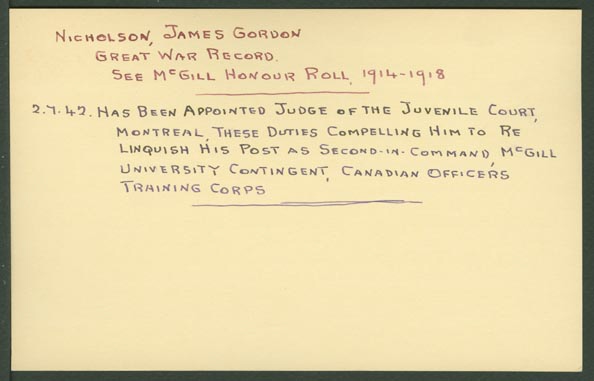 NICHOLSON, JAMES GORDON
GREAT WAR RECORD.
SEE McGILL HONOUR ROLL, 1914-1918
2.7.42. HAS BEEN APPOINTED JUDGE OF THE JUVENILE COURT,
MONTREAL, THESE DUTIES COMPELLING HIM TO RE
LINQUISH HIS POST AS SECOND-IN-COMMAND, McGILL
UNIVERSITY CONTINGENT, CANADIAN OFFICERS
TRAINING CORPS